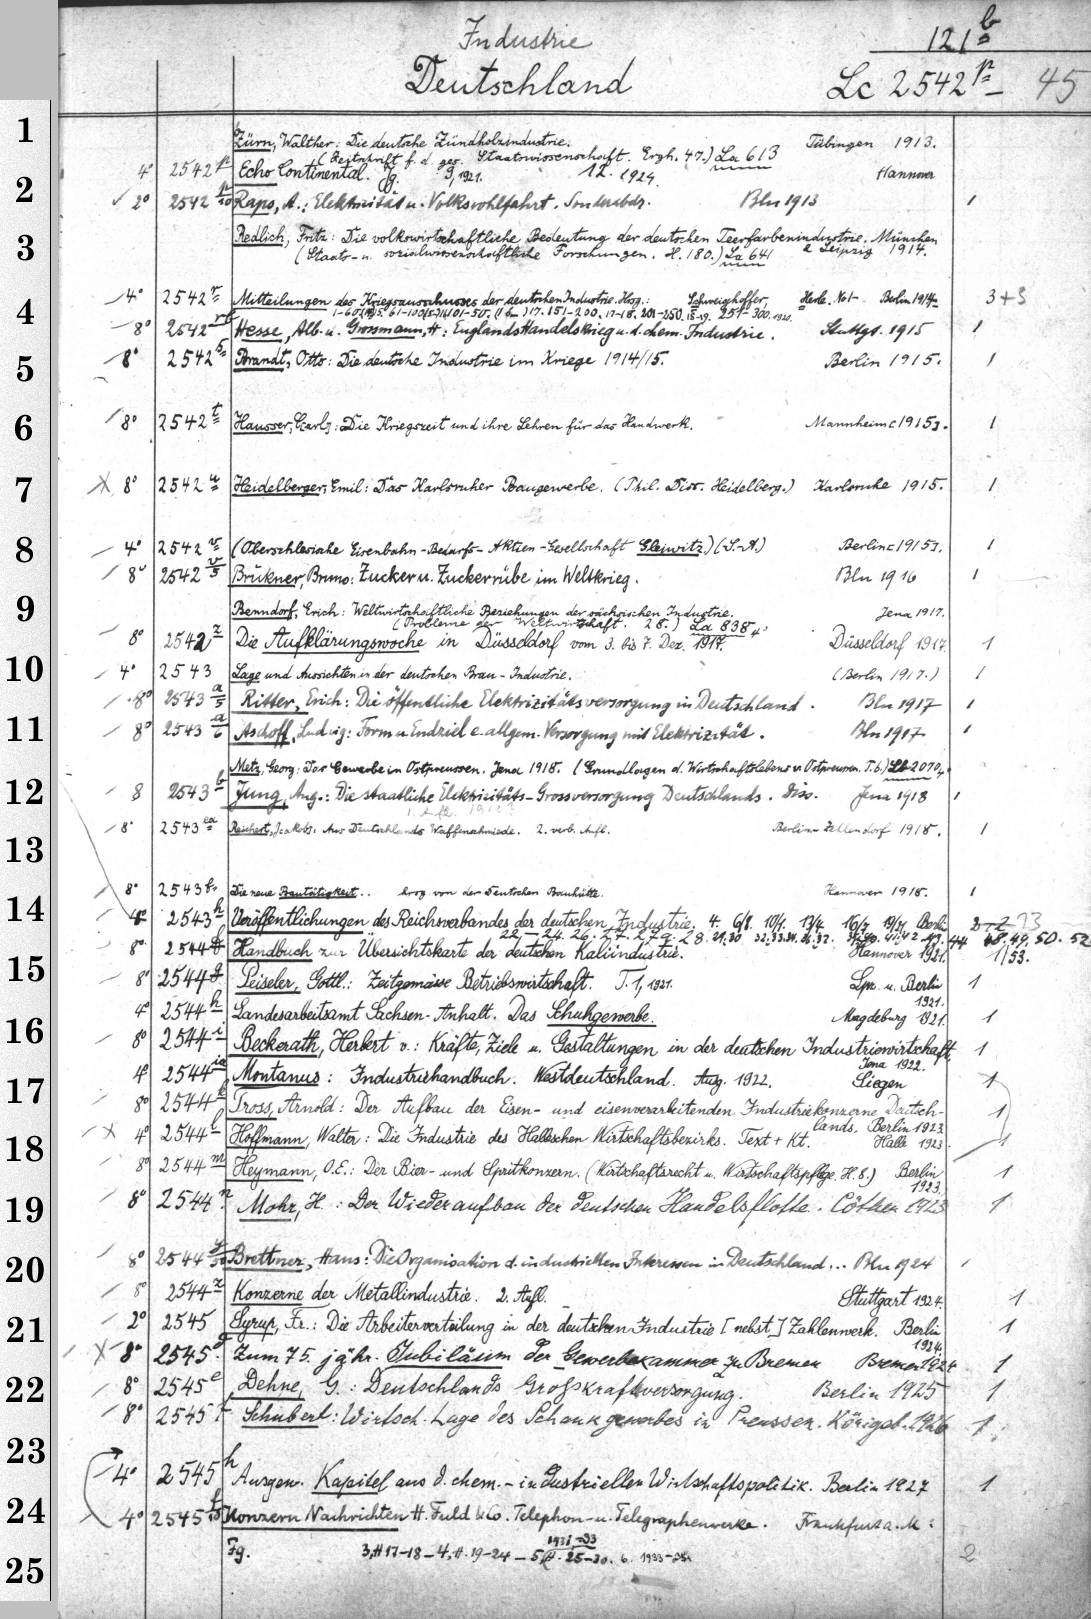 Industrie
121 b
Deutschland
Lc 2542 p 45
1
Zürn, Walther: Die deutsche Zündholzindustrie. Tübingen 1913.
(Zeitschrift f. d. ges. Staatswissenschaft. Ergh. 47.) La 613
4° 2542 Echo Continental. Jg. 9, 1921. 12. 1924. Hannover
2
2° 2542 Raps, A.: Elektrizität u. Volkswohlfahrt. Sonderabdr. Bln 1913 1
3
Redlich, Fritz: Die volkswirtschaftliche Bedeutung der deutschen Teerfarbenindustrie. München
(Staats- u. sozialwissenschaftliche Forschungen. H. 180.) La 641 & Leipzig 1914.
4° 2542 r Mitteilungen des Kriegsausschusses der deutschen Industrie. Hsg.: Schweighoffer, Herle. No 1- Berlin 1914- 3+3
4
151-200. 17-18. 201-250. 18-19. 251-300. 1920.
8° 2542 Hesse, Alb. u. Grossmann, H: Englands Handelskrieg u. d. chem. Industrie. Stuttgt. 1915 1
5
8° 2542 s Brandt, Otto: Die deutsche Industrie im Kriege 1914/15. Berlin 1915. 1
6
8° 2542 t Hausser, Carl: Die Kriegszeit und ihre Lehren für das Handwerk. Mannheim [1915]. 1
7
8° 2542 u Heidelberger, Emil: Das Karlsruher Baugewerbe. (Phil. Diss. Heidelberg.) Karlsruhe 1915. 1
8
4° 2542 v (Oberschlesische Eisenbahn-Bedarfs-Aktien-Gesellschaft Gleiwitz) (S.-A.) Berlin [1915]. 1
8° 2542 v/5 Brükner, Bruno: Zucker u. Zuckerrübe im Weltkrieg. Bln 1916 1
9
Benndorf, Erich: Weltwirtschaftliche Beziehungen der sächsischen Industrie. Jena 1917.
(Probleme der Weltwirtschaft. 28.) La 838
8° 2542 z Die Aufklärungswoche in Düsseldorf vom 3. bis 7. Dez. 1917. Düsseldorf 1917. 1
10
4° 2543 Lage und Aussichten in der deutschen Brau-Industrie. (Berlin 1917.) 1
8° 2543 a/5 Ritter, Erich: Die öffentliche Elektrizitätsversorgung in Deutschland. Bln 1917 1
11
8° 2543 a/6 Aschoff, Ludwig: Form u Endziel e. allgem. Versorgung mit Elektrizität. Bln 1917 1
Metz, Georg: Das Gewerbe in Ostpreussen. Jena 1918. (Grundlagen d. Wirtschaftslebens v. Ostpreussen. T. 6.) Lb 2070
12
8 2543 b Jung, Aug.: Die staatliche Elektricitäts-Grossversorgung Deutschlands. Diss. Jena 1918 1
8° 2543 ea Reichert, Jakob: Aus Deutschlands Waffenschmiede. 2. verb. Aufl. Berlin-Zehlendorf 1918. 1
13
8° 2543 Die neue Bautätigkeit.. hrsg. von der Deutschen Bauhütte. Hannover 1918. 1
14
4° 2543 h Veröffentlichungen des Reichsverbandes der deutschen Industrie. 4. 6/8. 10/1. 13/4. 16/7 19/4 Berlin
22-24. 26. 27. 28. 48. 49. 50. 52
8° 2544 Handbuch zur Übersichtskarte der deutschen Kaliindustrie. Hannover 1921. 1 53.
15
8° 2544 g Peiseler, Gottl.: Zeitgemässe Betriebswirtschaft. T. 1, 1921. Lpz. u. Berlin 1921. 1
4° 2544 h Landesarbeitsamt Sachsen-Anhalt. Das Schuhgewerbe. Magdeburg 1921. 1
16
8° 2544 i Beckerath, Herbert v.: Kräfte, Ziele u. Gestaltungen in der deutschen Industriewirtschaft. Jena 1922. 1
17
4° 2544 ia Montanus: Industriehandbuch. Westdeutschland. Ausg. 1922. Siegen 1
8° 2544 k Tross, Arnold: Der Aufbau der Eisen- und eisenverarbeitenden Industriekonzerne Deutschlands. Berlin 1923 1
18
4° 2544 l Hoffmann, Walter: Die Industrie des Halleschen Wirtschaftsbezirks. Text + Kt. Halle 1923. 1
8° 2544 m Heymann, O.E.: Der Bier- und Spritkonzern. (Wirtschaftsrecht u. Wirtschaftspflege. H. 8.) Berlin 1923. 1
19
8° 2544 n Mohr, H.: Der Wiederaufbau der deutschen Handelsflotte. Cöthen 1923 1
20
8° 2544 Brettner, Hans: Die Organisation d. industriellen Interessen in Deutschland... Bln 1924 1
8° 2544 z Konzerne der Metallindustrie. 2. Aufl. Stuttgart 1924. 1
21
2° 2545 Syrup, Fr.: Die Arbeiterverteilung in der deutschen Industrie [nebst] Zahlenwerk. Berlin 1924. 1
8° 2545 d Zum 75. jähr. Jubiläum der Gewerbekammer zu Bremen Bremen 1924 1
22
8° 2545 e Dehne, G.: Deutschlands Großkraftversorgung. Berlin 1925 1
8° 2545 f Schubert: Wirtsch. Lage des Schankgewerbes in Preussen. Königsb. 1926 1
23
4° 2545 h Ausgew. Kapitel aus d. chem.-industriellen Wirtschaftspolitik. Berlin 1927 1
24
4° 2545 Konzern Nachrichten H. Fuld & Co. Telephon- u. Telegraphenwerke. Frankfurt a. M:
Jg. 3, H 17-18 - 4, H. 19-24 - 5, H. 25-30. 6. 1933 2
25